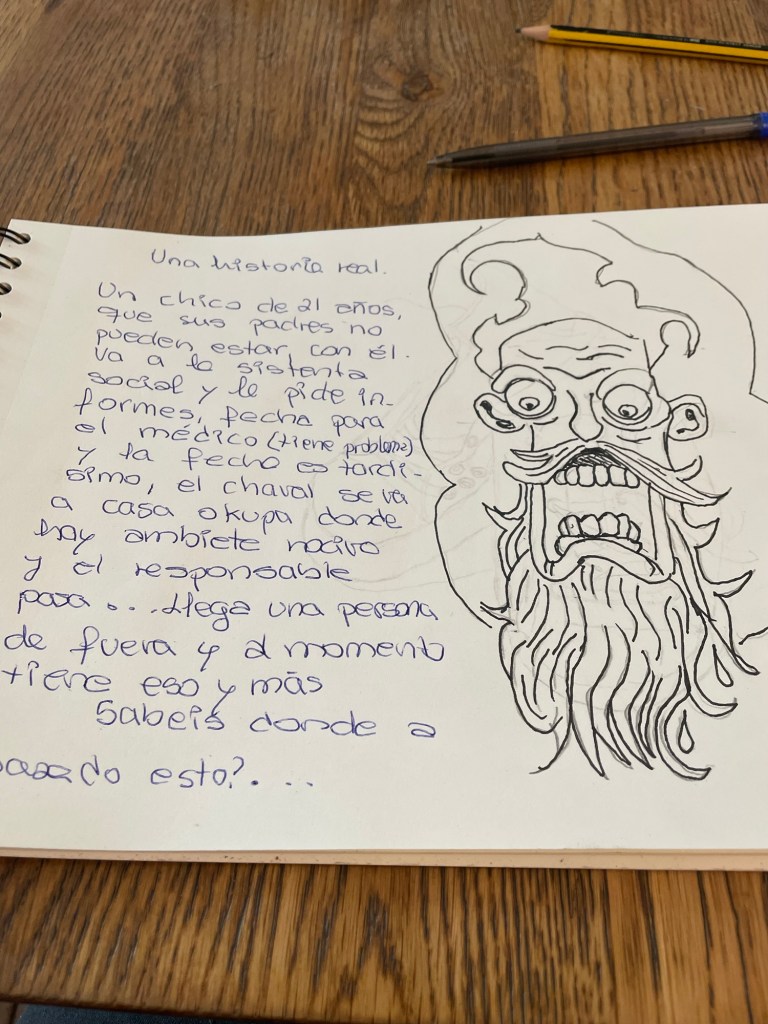 Una historia real.
Un chico de 21 años,
que sus padres no
pueden estar con él.
va a la sistenta
social y le pide in-
formes, fecha para
el médico (tiene problema)
y la fecha es tardi-
simo, el chaval se va
a casa okupa donde
hay ambiete nocivo
y el responsable
pasa.... llega una persona
de fuera y al momento
tiene eso y más
Sabeis donde a
pasado esto?....